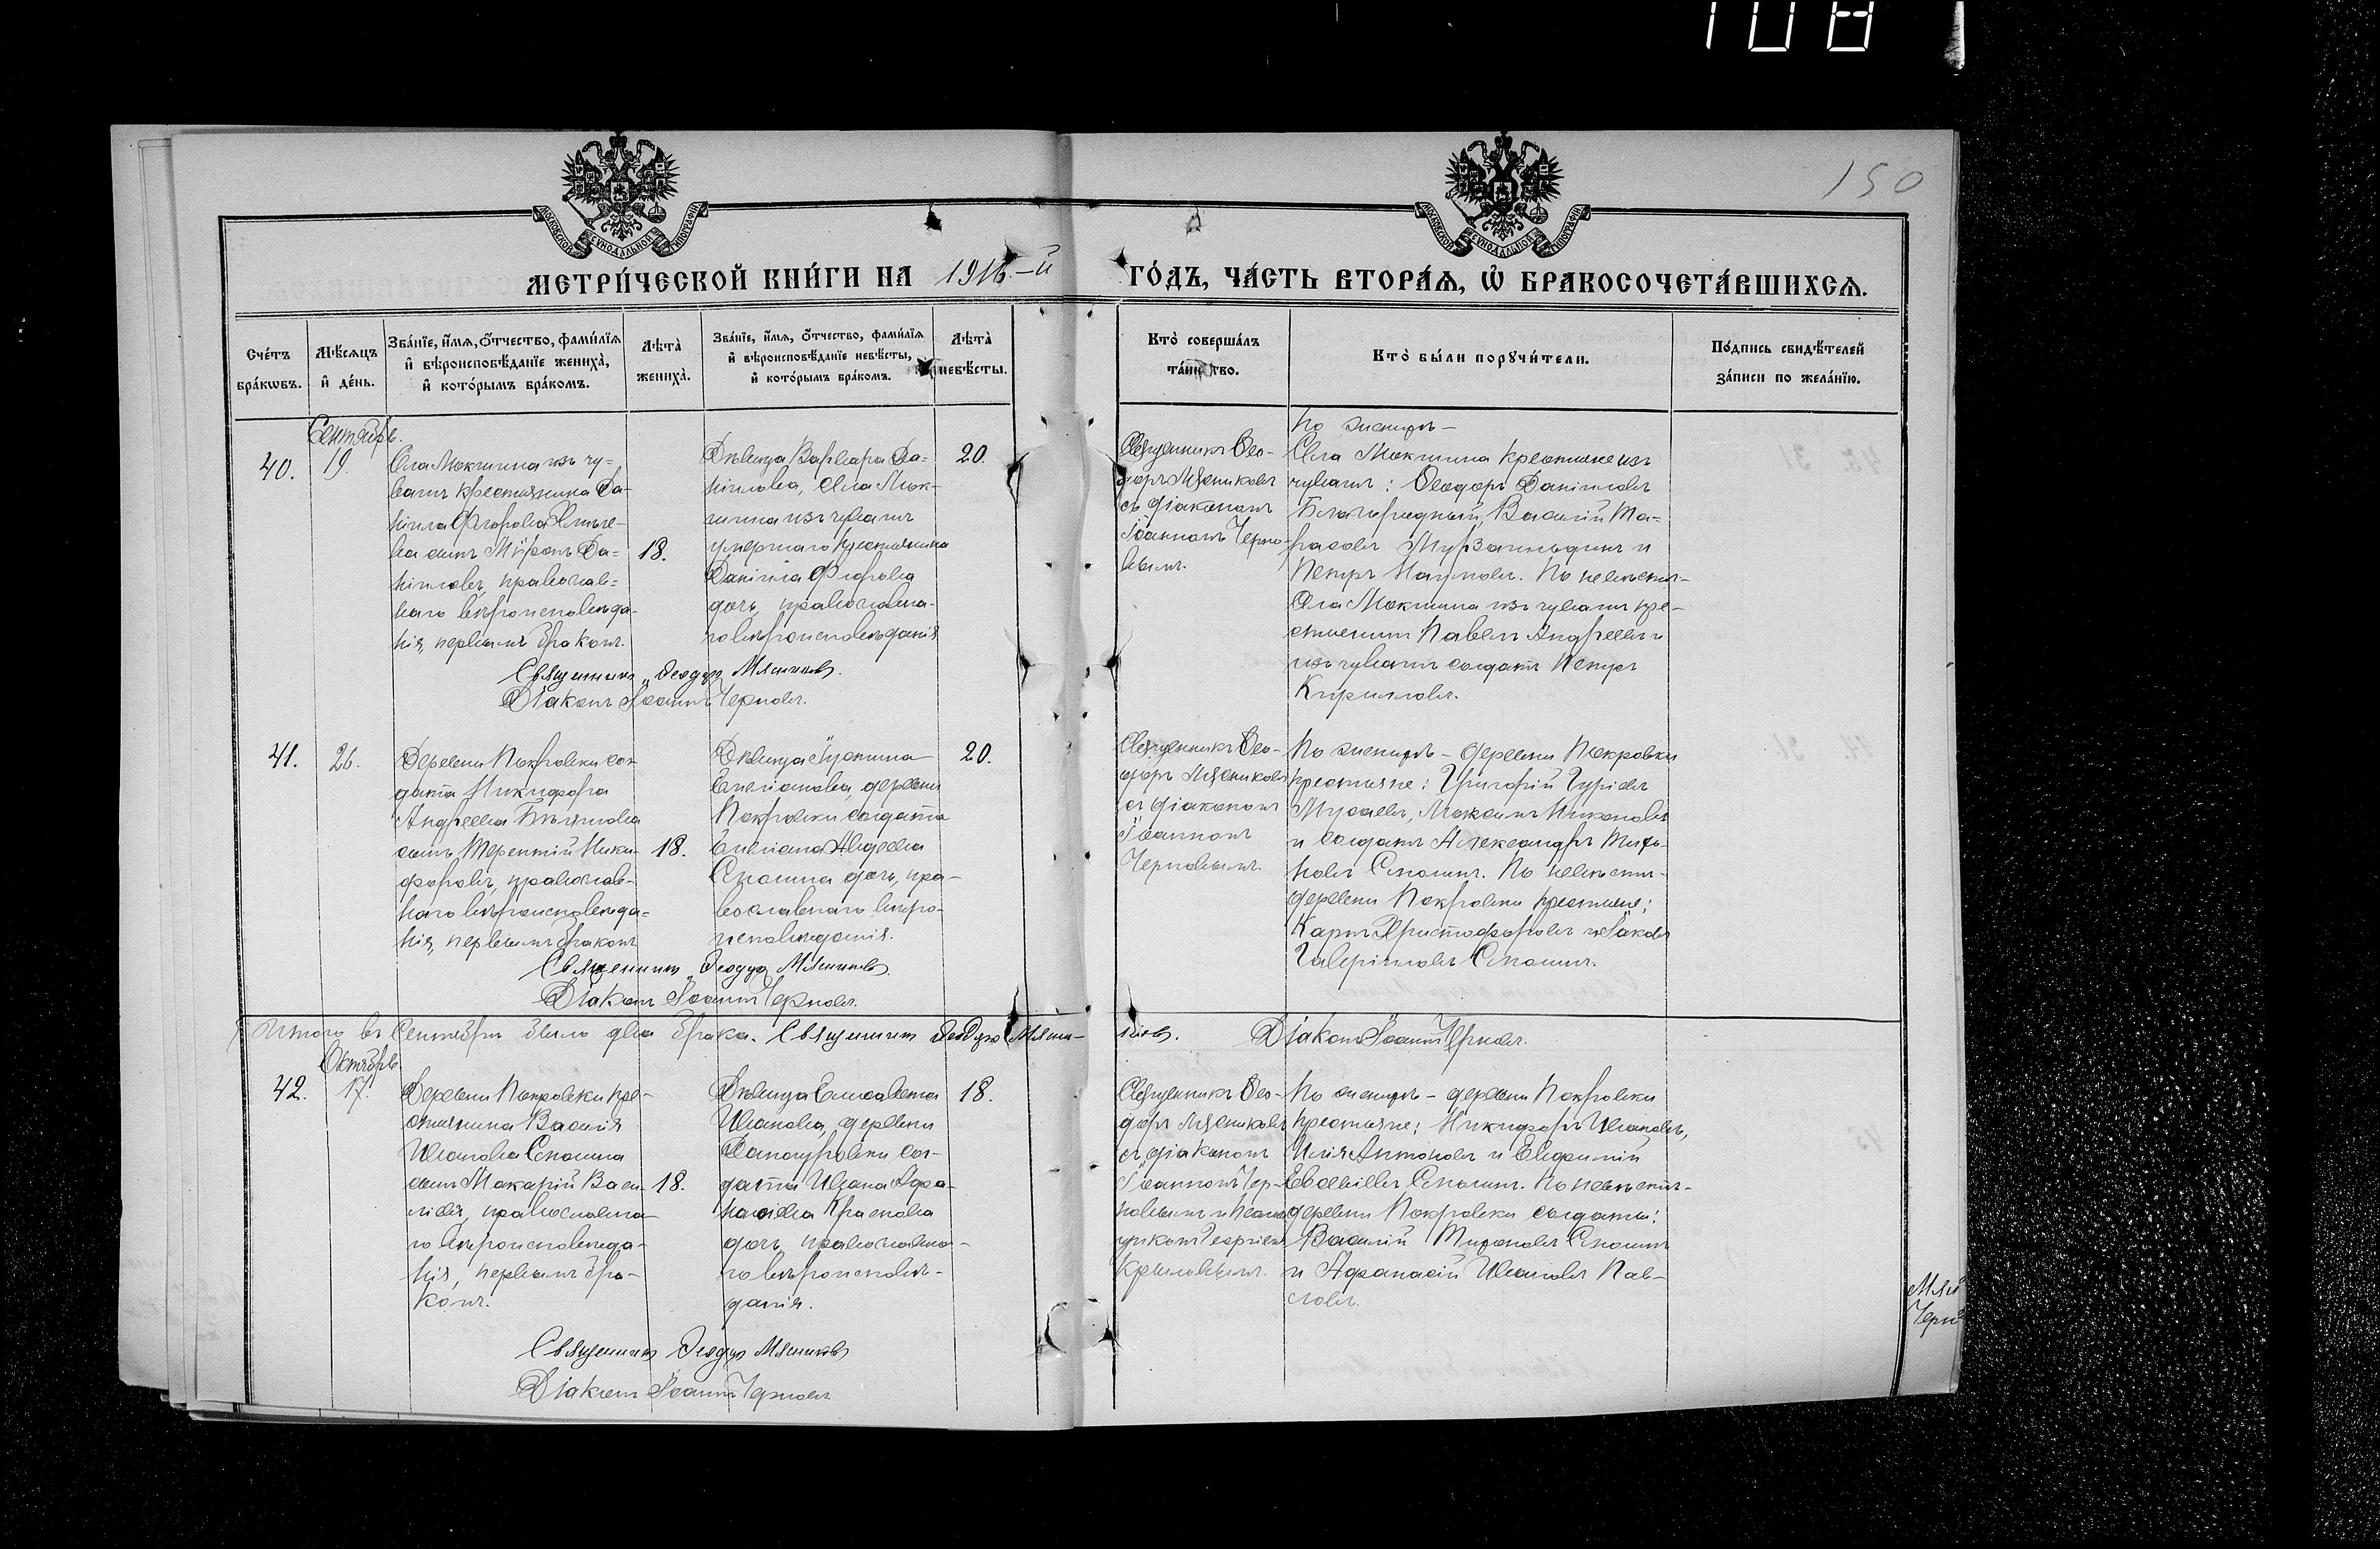 108
150
МОСКОВСКОЙ СѴНОДАЛЬНОЙ ТИПОГРАФІИ
МОСКОВСКОЙ СѴНОДАЛЬНОЙ ТИПОГРАФІИ
МЕТРИ́ЧЕСКОЙ КНИ́ГИ НА 1916-й ГО́ДЪ, ЧА́СТЬ ВТОРА́Я, Ѡ҆ БРАКОСОЧЕТА́ВШИХСЯ.
Сче́тъ
бра́кѡвъ.
Мѣ́сяцъ
и҆ де́нь.
Зва́нїе, и҆́мя, ѻ҆́тчество, фами́лїя
и҆ вѣроисповѣ́данїе жениха̀,
и҆ кото́рымъ бра́комъ.
Лѣта̀
жениха̀.
Зва́нїе, и҆́мя, ѻ҆́тчество, фами́лїя
и҆ вѣроисповѣ́данїе невѣ́сты,
и҆ кото́рымъ бра́комъ.
Лѣта̀
невѣ́сты.
Кто̀ соверша́лъ
та́инство.
Кто̀ бы́ли порꙋчи́тели.
По́дпись свидѣ́телей
за́писи по жела́нїю.
Сентябрь.
40.
19.
Села Мокшина изъ чу-
вашъ крестьянина Да-
ніила Флорова
сынъ Мѵронъ Да-
ніиловъ, православ-
наго вѣроисповѣда-
нія, первымъ бракомъ.
18.
Дѣвица Варвара Да-
ніилова, села Мок-
шина изъ чувашъ
умершаго крестьянина
Даніила Флорова
дочь, православна-
го вѣроисповѣданія
20.
Священникъ Ѳео-
доръ Мясниковъ
съ діакономъ
Іоанномъ Черно-
вымъ.
По женихѣ -
Села Мокшина крестьяне изъ
чувашъ: Ѳеодоръ Даніиловъ
Василій Та-
расовъ и
Петръ Наумовъ. По невѣстѣ -
Села Мокшина изъ чувашъ кре-
стьянинъ Павелъ Андреевъ и
изъ чувашъ солдатъ Петръ
Кирилловъ.
Священникъ Ѳеодоръ Мясниковъ.
Діаконъ Іоаннъ Черновъ.
41.
26.
Деревни Покровки сол-
дата Никифора
Андреева Бѣлякова
сынъ Терентій Ники-
форовъ, православ-
наго вѣроисповѣда-
нія, первымъ бракомъ
18.
Дѣвица
Емеліанова, деревни
Покровки солдата
Емеліана Авдеева
дочь, пра-
вославнаго вѣро-
исповѣданія.
20.
Священникъ Ѳео-
доръ Мясниковъ
съ діакономъ
Іоанномъ
Черновымъ.
По женихѣ - деревни Покровки
крестьяне: Григорій Гуріевъ
Максимъ Никоновъ
и солдатъ Александръ
По невѣстѣ -
деревни Покровки крестьяне:
Карпъ Христофоровъ и Іаковъ
Гавріиловъ
Священникъ Ѳеодоръ Мясниковъ.
Діаконъ Іоаннъ Черновъ.
Итого въ Сентябрѣ было два брака. Священникъ Ѳеодоръ Мясни-
ковъ. Діаконъ Іоаннъ Черновъ.
Октябрь
42.
17.
Деревни Покровки кре-
стьянина Василія
Иванова
сынъ Макарій Васи-
ліевъ, православна-
го вѣроисповѣда-
нія, первымъ бра-
комъ.
18.
Дѣвица Елисавета
Иванова, деревни
сол-
дата Ивана Афа-
насіева Краснова
дочь, православна-
го вѣроисповѣ-
данія.
18.
Священникъ Ѳео-
доръ Мясниковъ
съ діакономъ
Іоанномъ Чер-
новымъ и псалом-
щикомъ Георгіемъ
Крыловымъ.
По женихѣ - деревни Покровки
крестьяне: Никифоръ Ивановъ,
Илія Антоновъ и Евфимій
Евсевіевъ По невѣстѣ -
деревни Покровки солдаты:
Василій
и Афанасій Ивановъ Пав-
ловъ.
Священникъ Ѳеодоръ Мясниковъ
Діаконъ Іоаннъ Черновъ